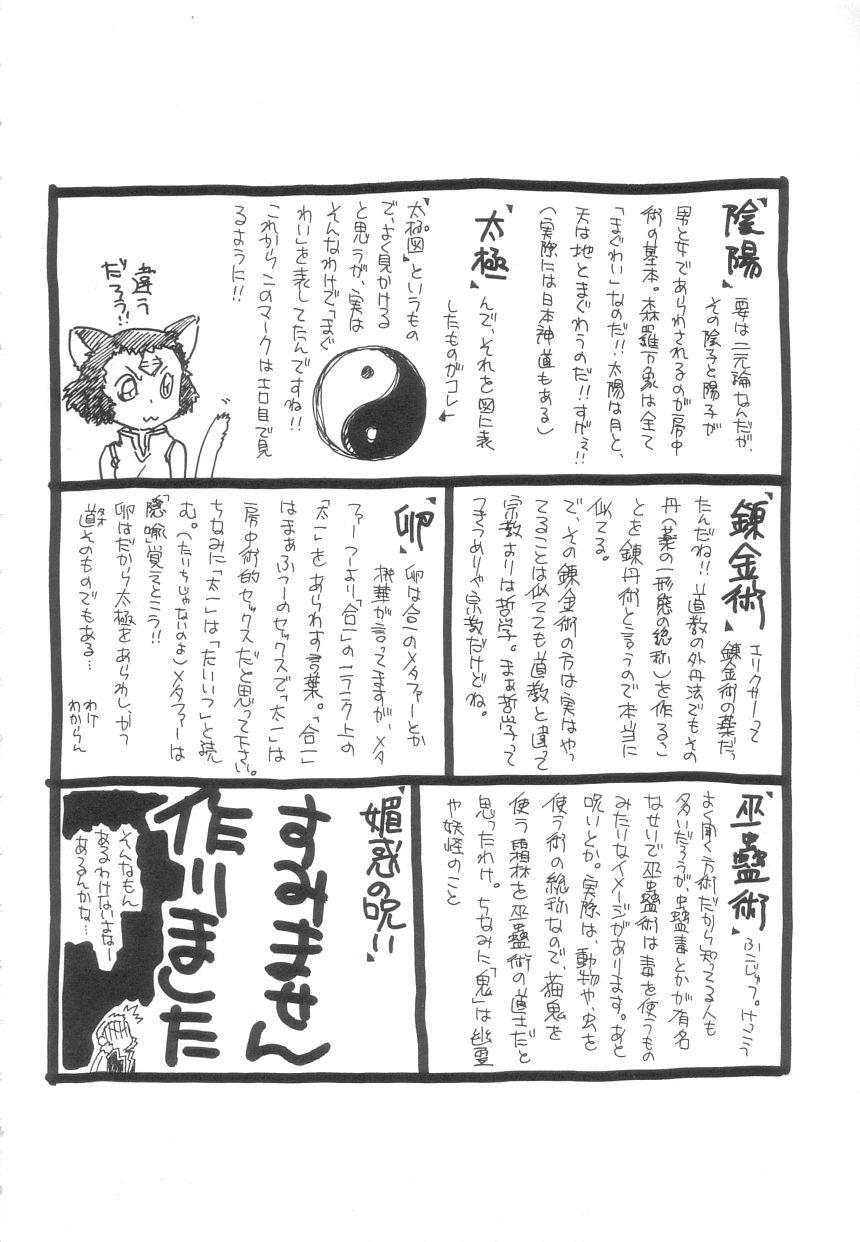 陰陽
要は二元論なんだが、
その陰子と陽子が
男と女であらわされるのが房中
術の基本。森羅万象は全て
「まぐわい」なのだ!!太陽は月と、
天は地とまぐわうのだ!!すげぇ!!
(実際には日本神道もある)
太極
んで、それを図に表
したものがコレ
太極図』というもの
で、よく見かける
と思うが、実は
そんなわけで「まぐ
わい」を表してたんですね!!
これからこのマークはエロ目で見
るように!!
違う
だろう!!
錬金術
エリクサーって
錬金術の薬だっ
たんだね!!道教の外丹法でもその
丹(薬の一形態の総称)を作るこ
とを錬丹術と言うので本当に
似てる。
で、その錬金術の方は実はやっ
てることは似てても道教と違って
宗教よりは哲学。まぁ哲学って
つきつめりゃ宗教だけどね。
卵
卵は合一のメタファーとか
桃華が言ってますが、メタ
ファーつーより「合一」の一ランク上の
「太一」をあらわす言葉。「合一」
はまぁふつーのセックスで「太一」は
房中術的セックスだと思って下さい。
ちなみに「太一」は「たいいつ」と読
む。(たいちじゃないのよ)メタファーは
「隠喩」覚えとこう!!
卵はだから太極をあらわしかつ
道そのものでもある…
わけ
わからん
巫蠱術
ふこじゅつ。けっこう
よく聞く方術だから知ってる人も
多いだろうが、虫蠱毒とかが有名
なせいで巫蠱術は毒を使うもの
みたいなイメージがあります。あと
呪いとか。実際は、動物や、虫を
使う術の総称なので、猫鬼を
使う霜林を巫蠱術の道士だと
思ったわけ。ちなみに「鬼」は幽霊
や妖怪のこと
媚惑の呪!!
すみません
作りました
そんなもん
あるわけないよなー
あるんかな…